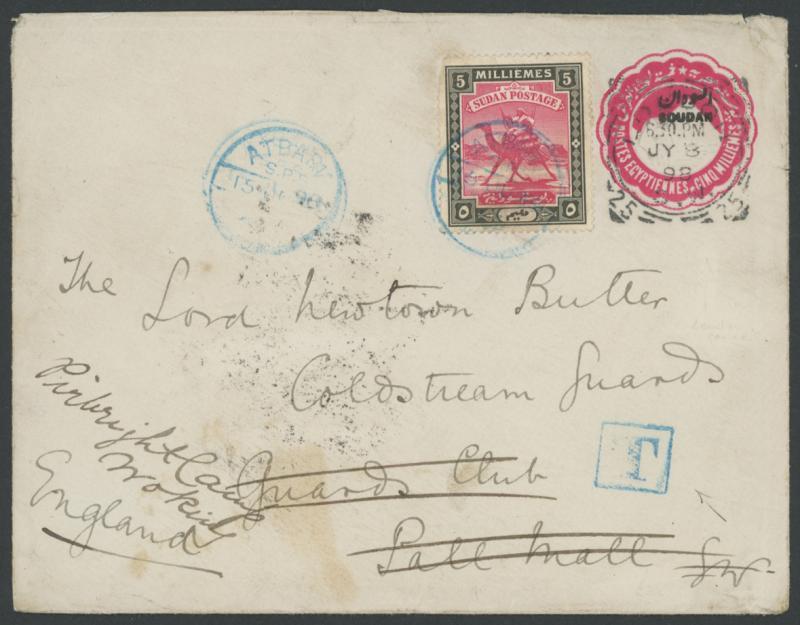 5 MILLIEMES 5
SUDAN POSTAGE
٥ مليم ٥
السودان
SOUDAN
POSTES EGYPTIENNES. CINQ MILLIEMES
6.30.PM
JY 8
98
25 25
ATBARA
The Lord Newtown Butler
Coldstream Guards
Guards Club
Pall Mall S.W.
Pirbright Camp
Woking
England
T